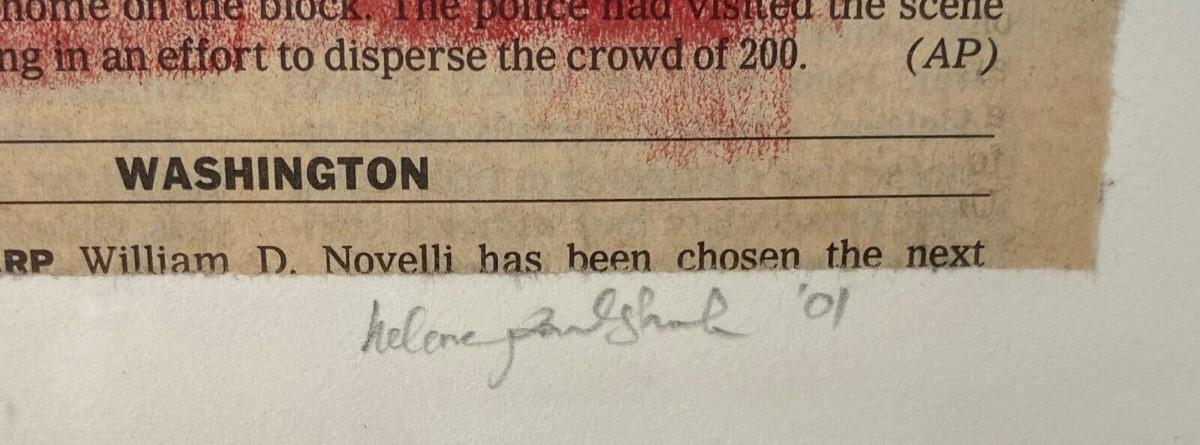 home on the block. The police had visited the scene
ng in an effort to disperse the crowd of 200. (AP)
WASHINGTON
RP William D. Novelli has been chosen the next
helene '01